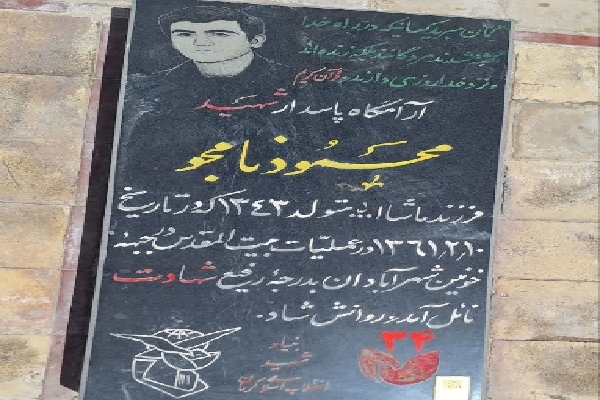 گمان مبرید کسانیکه در راه خدا
کشته شدند مردگانند بلکه زنده اند
و نزد خدا روزی دارند. قرآن کریم
آرامگاه پاسدار شهید
محمود نامجو
فرزند ماشااله متولد ۱۳۴۳ که در تاریخ
۱۳۶۱٫۲٫۱۰ در عملیات بیت المقدس در جبهه
خونین شهر آبادان بدرجه رفیع شهادت
نائل آمد. روانش شاد.
۳۴
بنیاد
شهید
انقلاب اسلامی